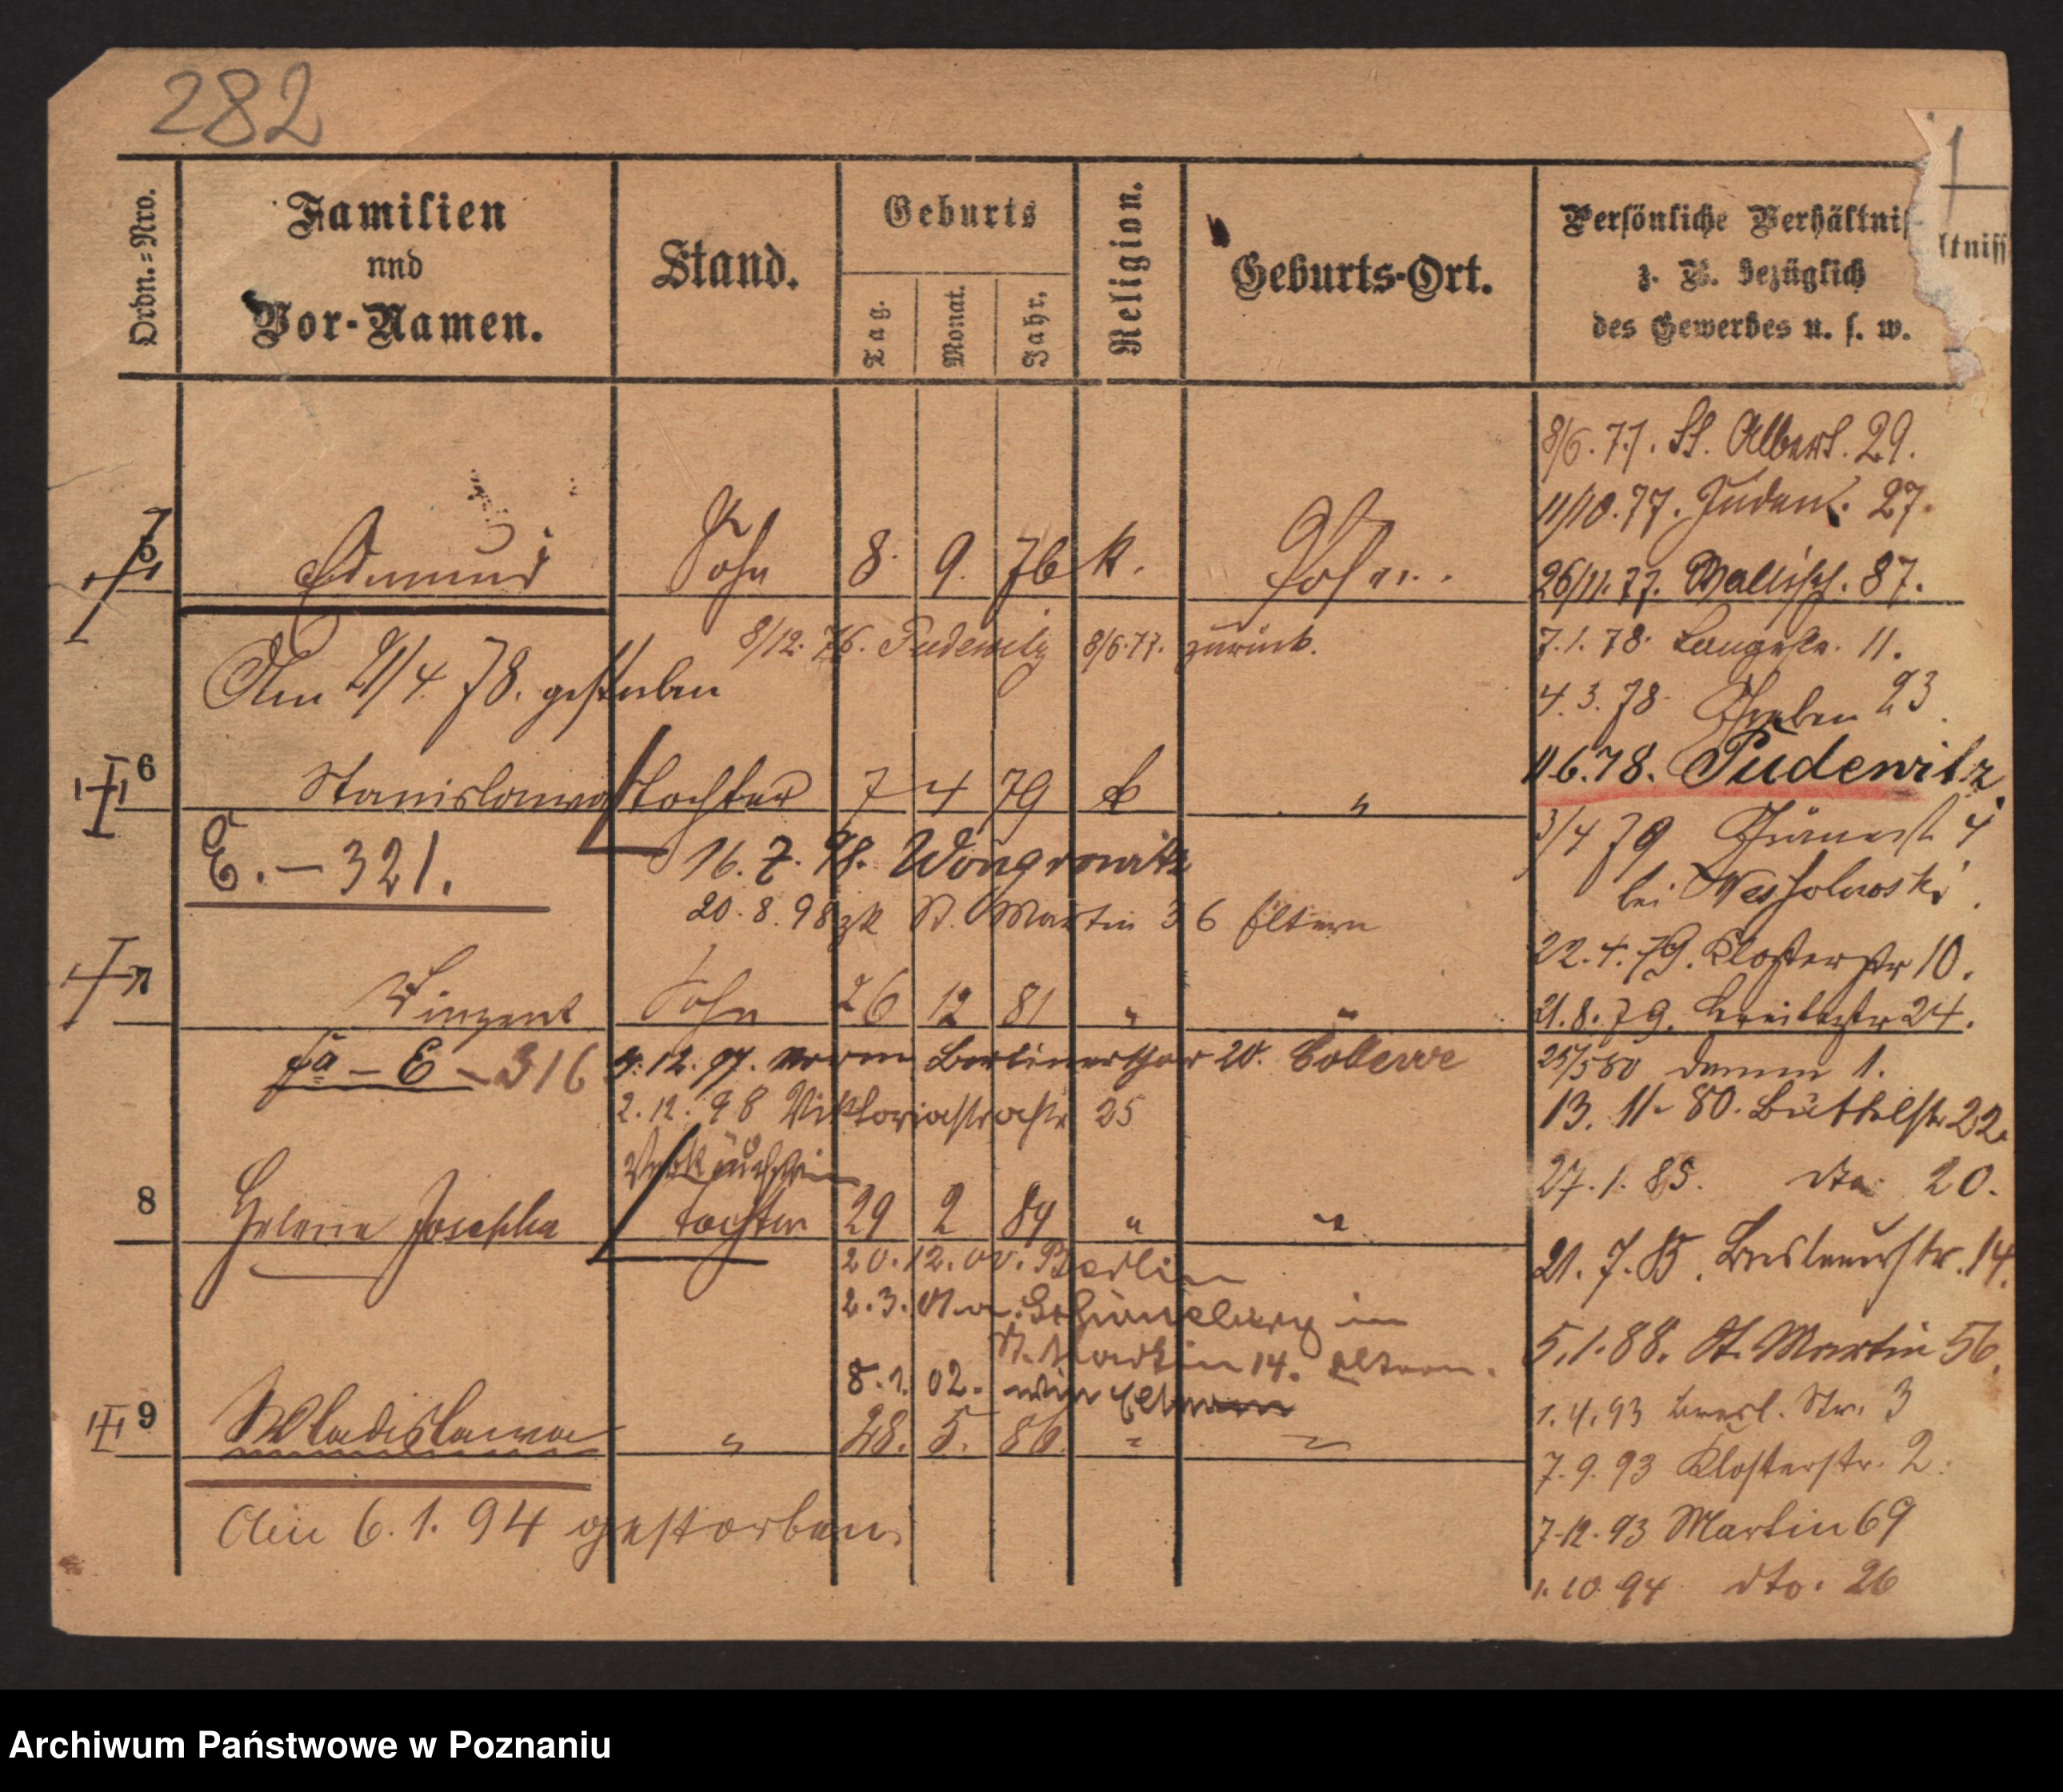 282
Ordn.=Nro.
Familien
und
Vor-Namen.
Stand.
Geburts
Tag.
Monat.
Jahr.
Religion.
Geburts-Ort.
Persönliche Verhältnis
z. B. bezüglich
des Gewerbes u. s. w.
1
ltniss
8/6. 77. St. Albert. 29.
11/10. 77. Judenst. 27.
5 Edmund Sohn 8. 9. 76 k. Posen.
26/11. 77. Wallisch. 87.
8/12. 76. Pudewitz 8/6. 77. zurück.
7. 1. 78. Langestr. 11.
Am 21/4. 78. gestorben
4. 3. 78. Graben 23.
11.6.78. Pudewitz
6 Stanislawa Tochter 7 4 79 k "
3/4 79 Grünest 4
E. - 321.
16. 7. 98. Wongrowitz
bei
20. 8. 98 zk St. Martin 36 Eltern
22. 4. 79. Klosterstr 10.
7 Vinzent Sohn 26 12 81 " "
21. 8. 79. Breitestr 24.
Fa - E - 316
9. 12. 97. Berlinerthor 20.
25/5 80 Damm 1.
2. 12. 98 Viktoriastraße 25
13. 11. 80. Büttelstr 22.
Verkäuferin
27. 1. 85. dto 20.
8 Helena Josepha Tochter 29 2 84 " "
20. 12. 00. Berlin
21. 7. 85. Breslauerstr. 14.
2. 3. 01 v. Schöneberg in
St. Martin 14. Eltern.
5. 1. 88. St. Martin 56.
8. 1. 02. wie Eltern
1. 4. 93 Bresl. Str. 3
9 Wladislawa " 28. 5. 86. " "
7. 9. 93 Klosterstr. 2.
Am 6. 1. 94 gestorben.
7. 12. 93 Martin 69
1. 10. 94 dto. 26
Archiwum Państwowe w Poznaniu